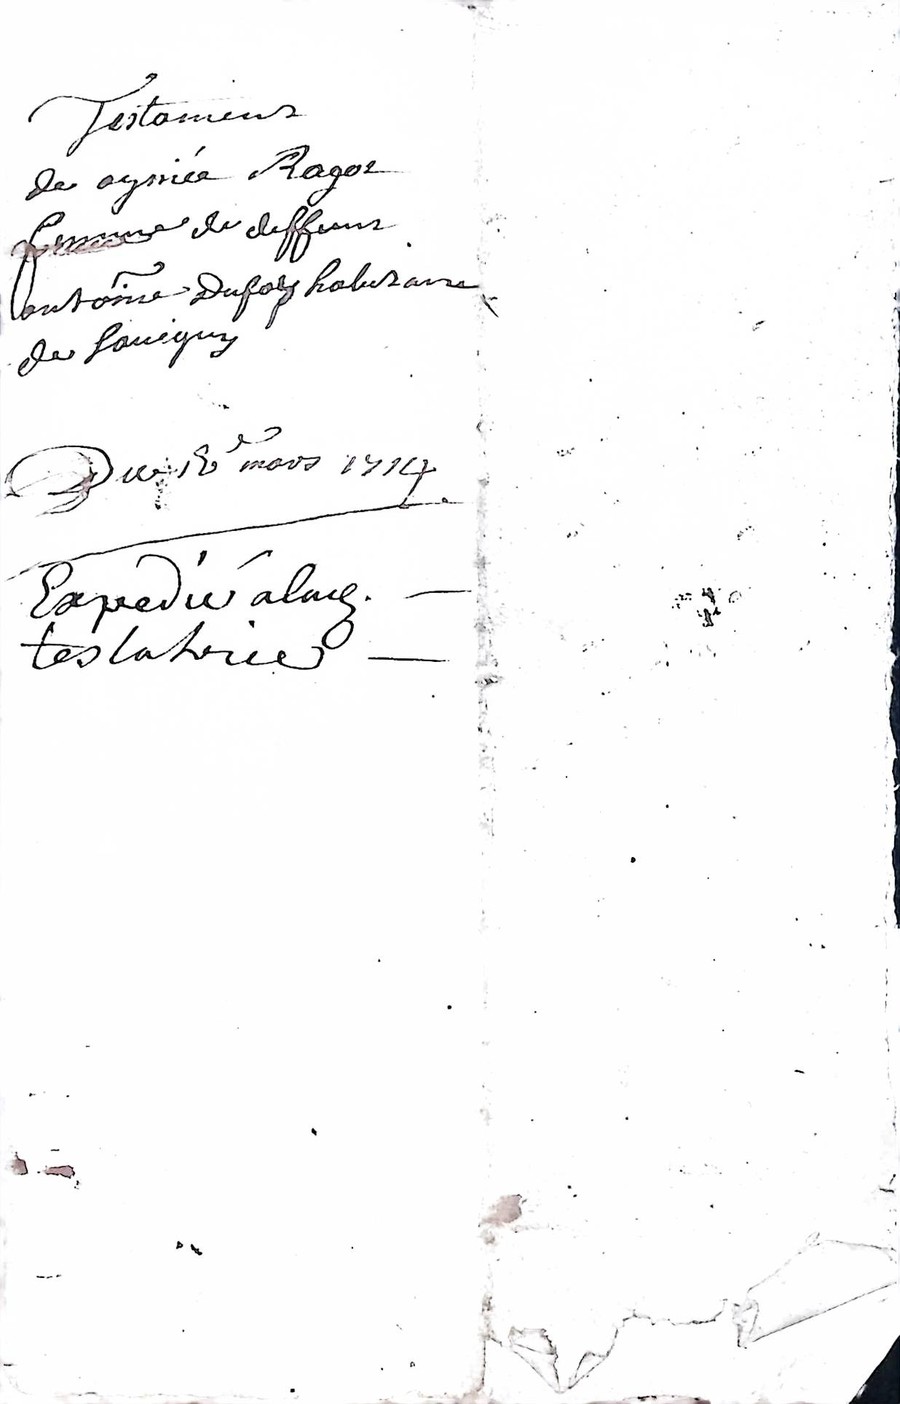 Testament
de aymée Ragot
femme de deffunt
antoine Dufoy habitant
de Savigny
Du 18e mars 1714
Expedié a lad.
testatrice